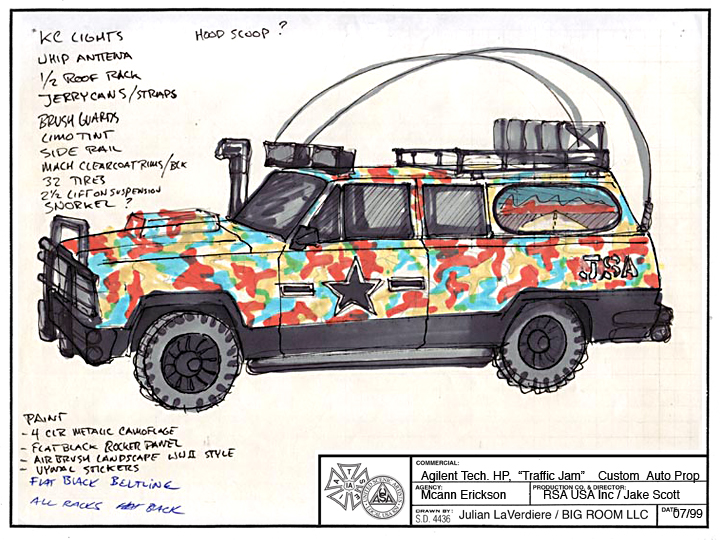 KC LIGHTS
HOOD SCOOP ?
WHIP ANTIENA
1/2 ROOF RACK
JERRYCANS/STRAPS
BRUSH GUARDS
LIMO TINT
SIDE RAIL
MACH CLEARCOAT RIMS/BLK
32 TIRES
2 1/2 LIFT ON SUSPENSION
SNORKEL ?
J.SA
PAINT
- 4 CLR METALIC CAMOFLAGE
- FLAT BLACK ROCKER PANEL
- AIR BRUSH LANDSCAPE WWII STYLE
- VYNAL STICKERS
FLAT BLACK BELTLINE
ALL RACKS BACK
COMMERCIAL:
Agilent Tech. HP, "Traffic Jam" Custom Auto Prop
AGENCY:
Mcann Erickson
PRODUCTION CO. & DIRECTOR:
RSA USA Inc / Jake Scott
DRAWN BY:
S.D. 4436
Julian LaVerdiere / BIG ROOM LLC
DATE
07/99